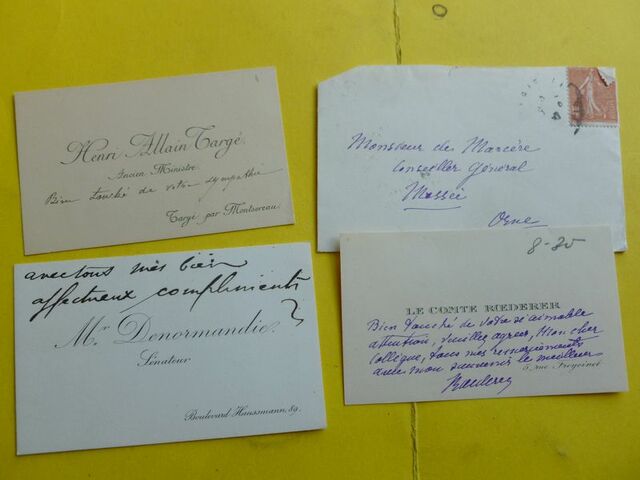 Henri Allain Targé
Ancien Ministre
Bien touché de votre sympathie
Targé par Montsoreau
Monsieur de Marcère
Conseiller Général
Messei
Orne
avec tous mes bien
affectueux compliments
Mr. Denormandie
Sénateur
Boulevard Haussmann, 89.
8-30
LE COMTE RŒDERER
Bien touché de votre si aimable
attention, veuillez agréer, Mon cher
Collègue, tous mes remerciements
avec mon souvenir le meilleur
Rœderer
5, rue Freycinet